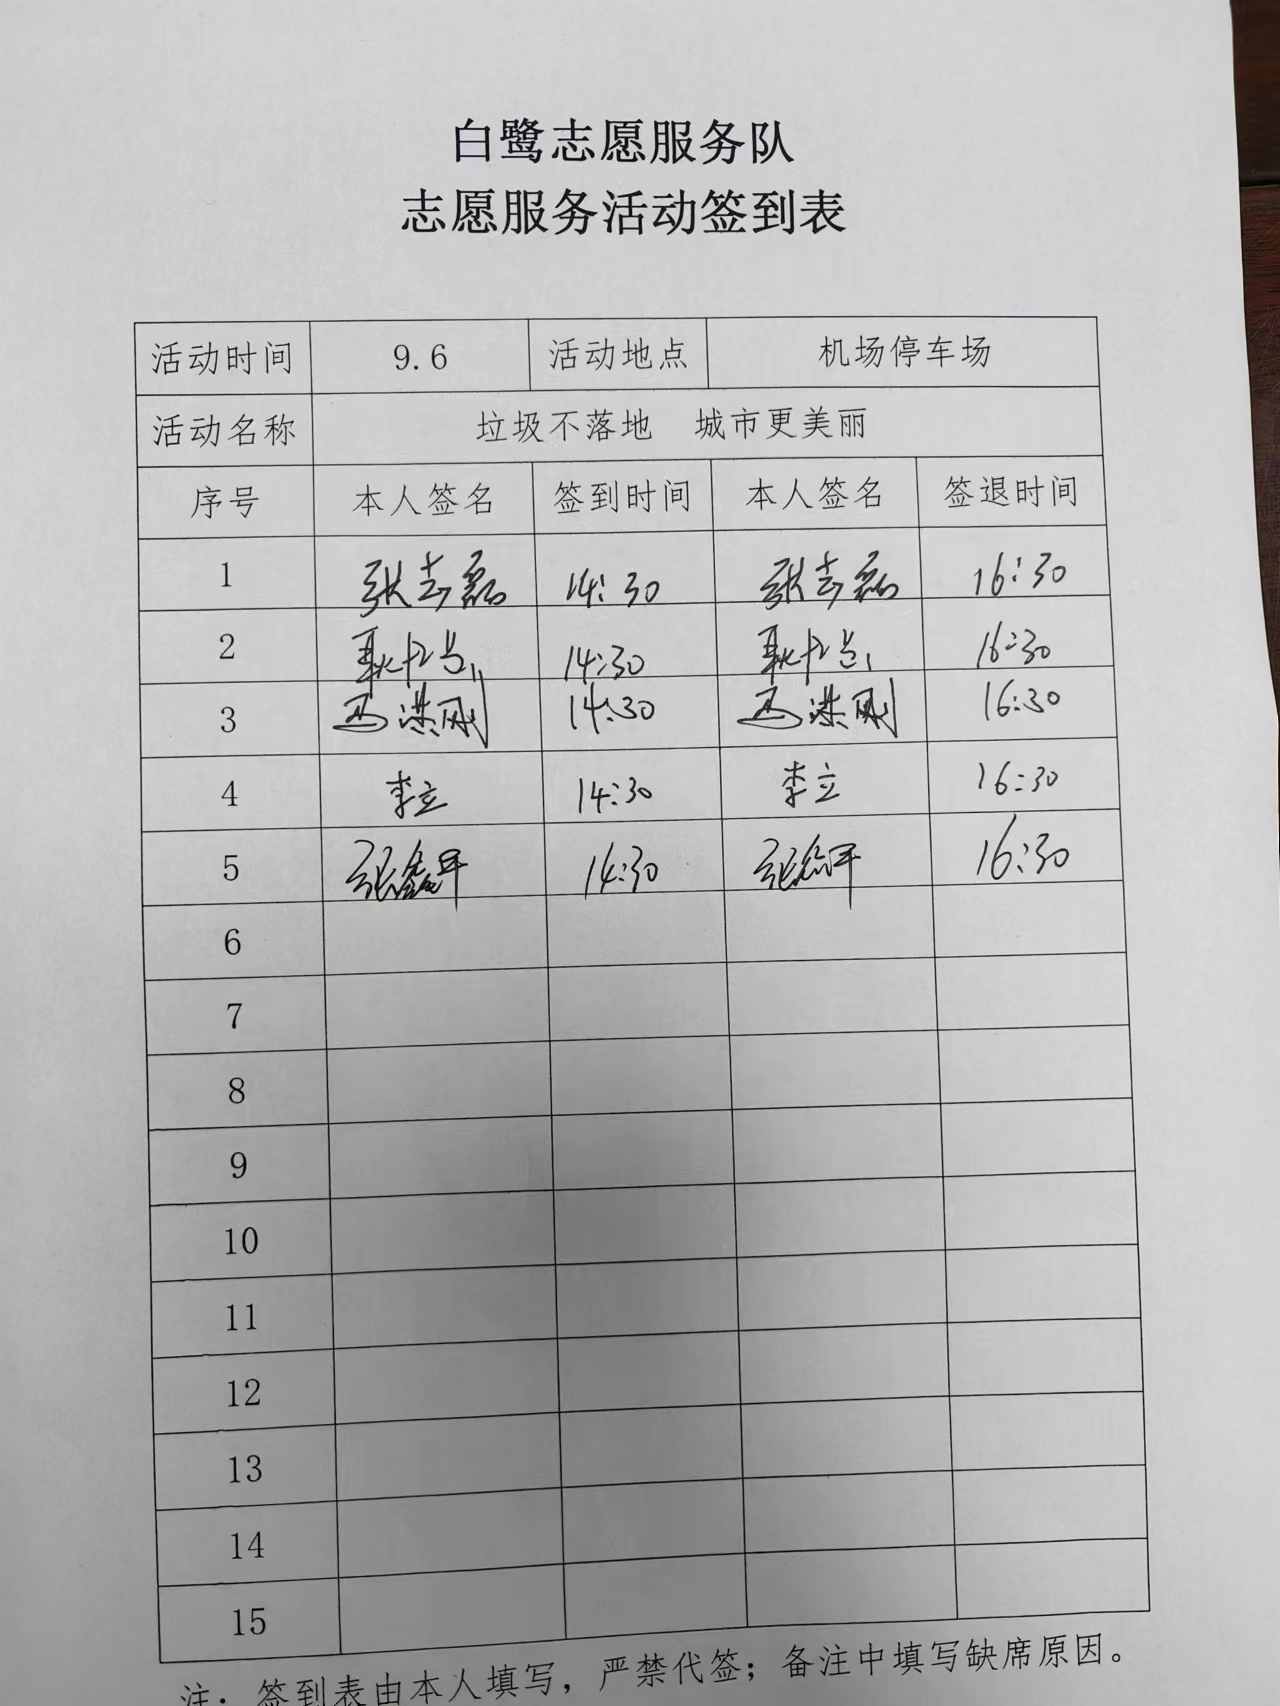 白鹭志愿服务队
志愿服务活动签到表
活动时间 9.6 活动地点 机场停车场
活动名称 垃圾不落地 城市更美丽
序号 本人签名 签到时间 本人签名 签退时间
1 张志磊 14:30 张志磊 16:30
2 14:30 16:30
3 冯洪刚 14:30 冯洪刚 16:30
4 李立 14:30 李立 16:30
5 14:30 16:30
6
7
8
9
10
11
12
13
14
15
注：签到表由本人填写，严禁代签；备注中填写缺席原因。